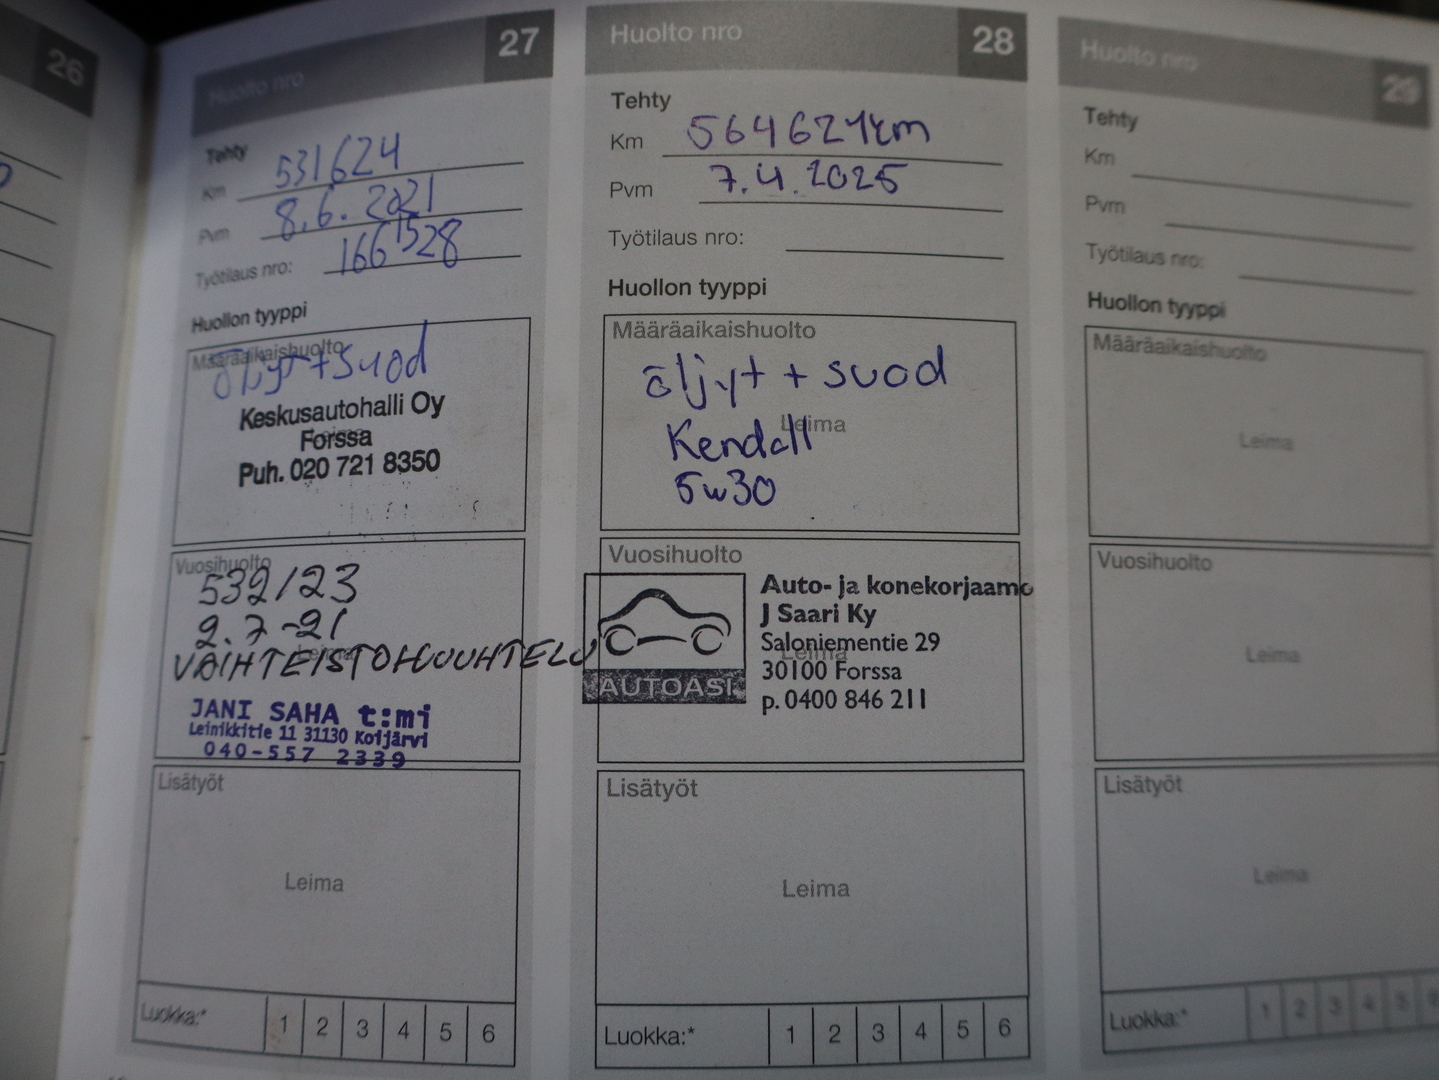 26
Huolto nro 27
Tehty
Km 531624
Pvm 8.6.2021
Työtilaus nro: 1661528
Huollon tyyppi
Määräaikaishuolto
öljyt + suod
Keskusautohalli Oy
Forssa
Puh. 020 721 8350
Vuosihuolto
532/23
2.7-21
VAIHTEISTOHUUHTELU
JANI SAHA t:mi
Leinikkitie 11 31130 Koijärvi
040-557 2339
Lisätyöt
Leima
Luokka:* 1 2 3 4 5 6
Huolto nro 28
Tehty
Km 564621km
Pvm 7.4.2025
Työtilaus nro:
Huollon tyyppi
Määräaikaishuolto
öljyt + suod
Leima
Kendall
5w30
Vuosihuolto
Auto- ja konekorjaamo
J Saari Ky
Saloniementie 29
Leima
30100 Forssa
AUTOASI
p. 0400 846 211
Lisätyöt
Leima
Luokka:* 1 2 3 4 5 6
Huolto nro 29
Tehty
Km
Pvm
Työtilaus nro:
Huollon tyyppi
Määräaikaishuolto
Leima
Vuosihuolto
Leima
Lisätyöt
Leima
Luokka:* 1 2 3 4 5 6